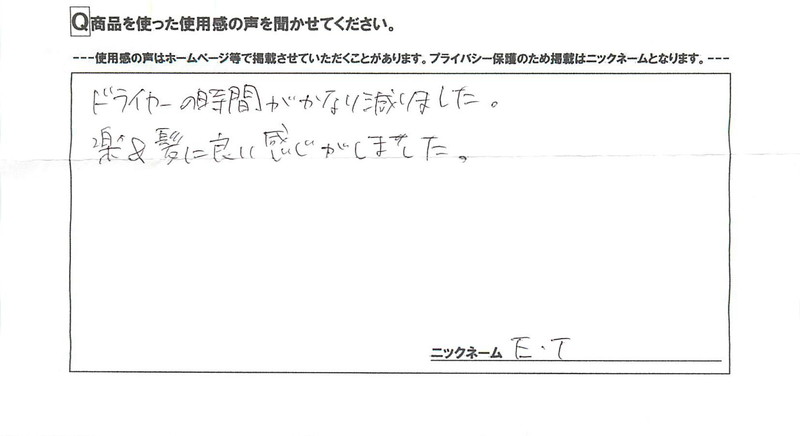 Q商品を使った使用感の声を聞かせてください。
---使用感の声はホームページ等で掲載させていただくことがあります。プライバシー保護のため掲載はニックネームとなります。---
ドライヤーの時間がかなり減りました。
楽&髪に良い感じがしました。
ニックネーム E・T